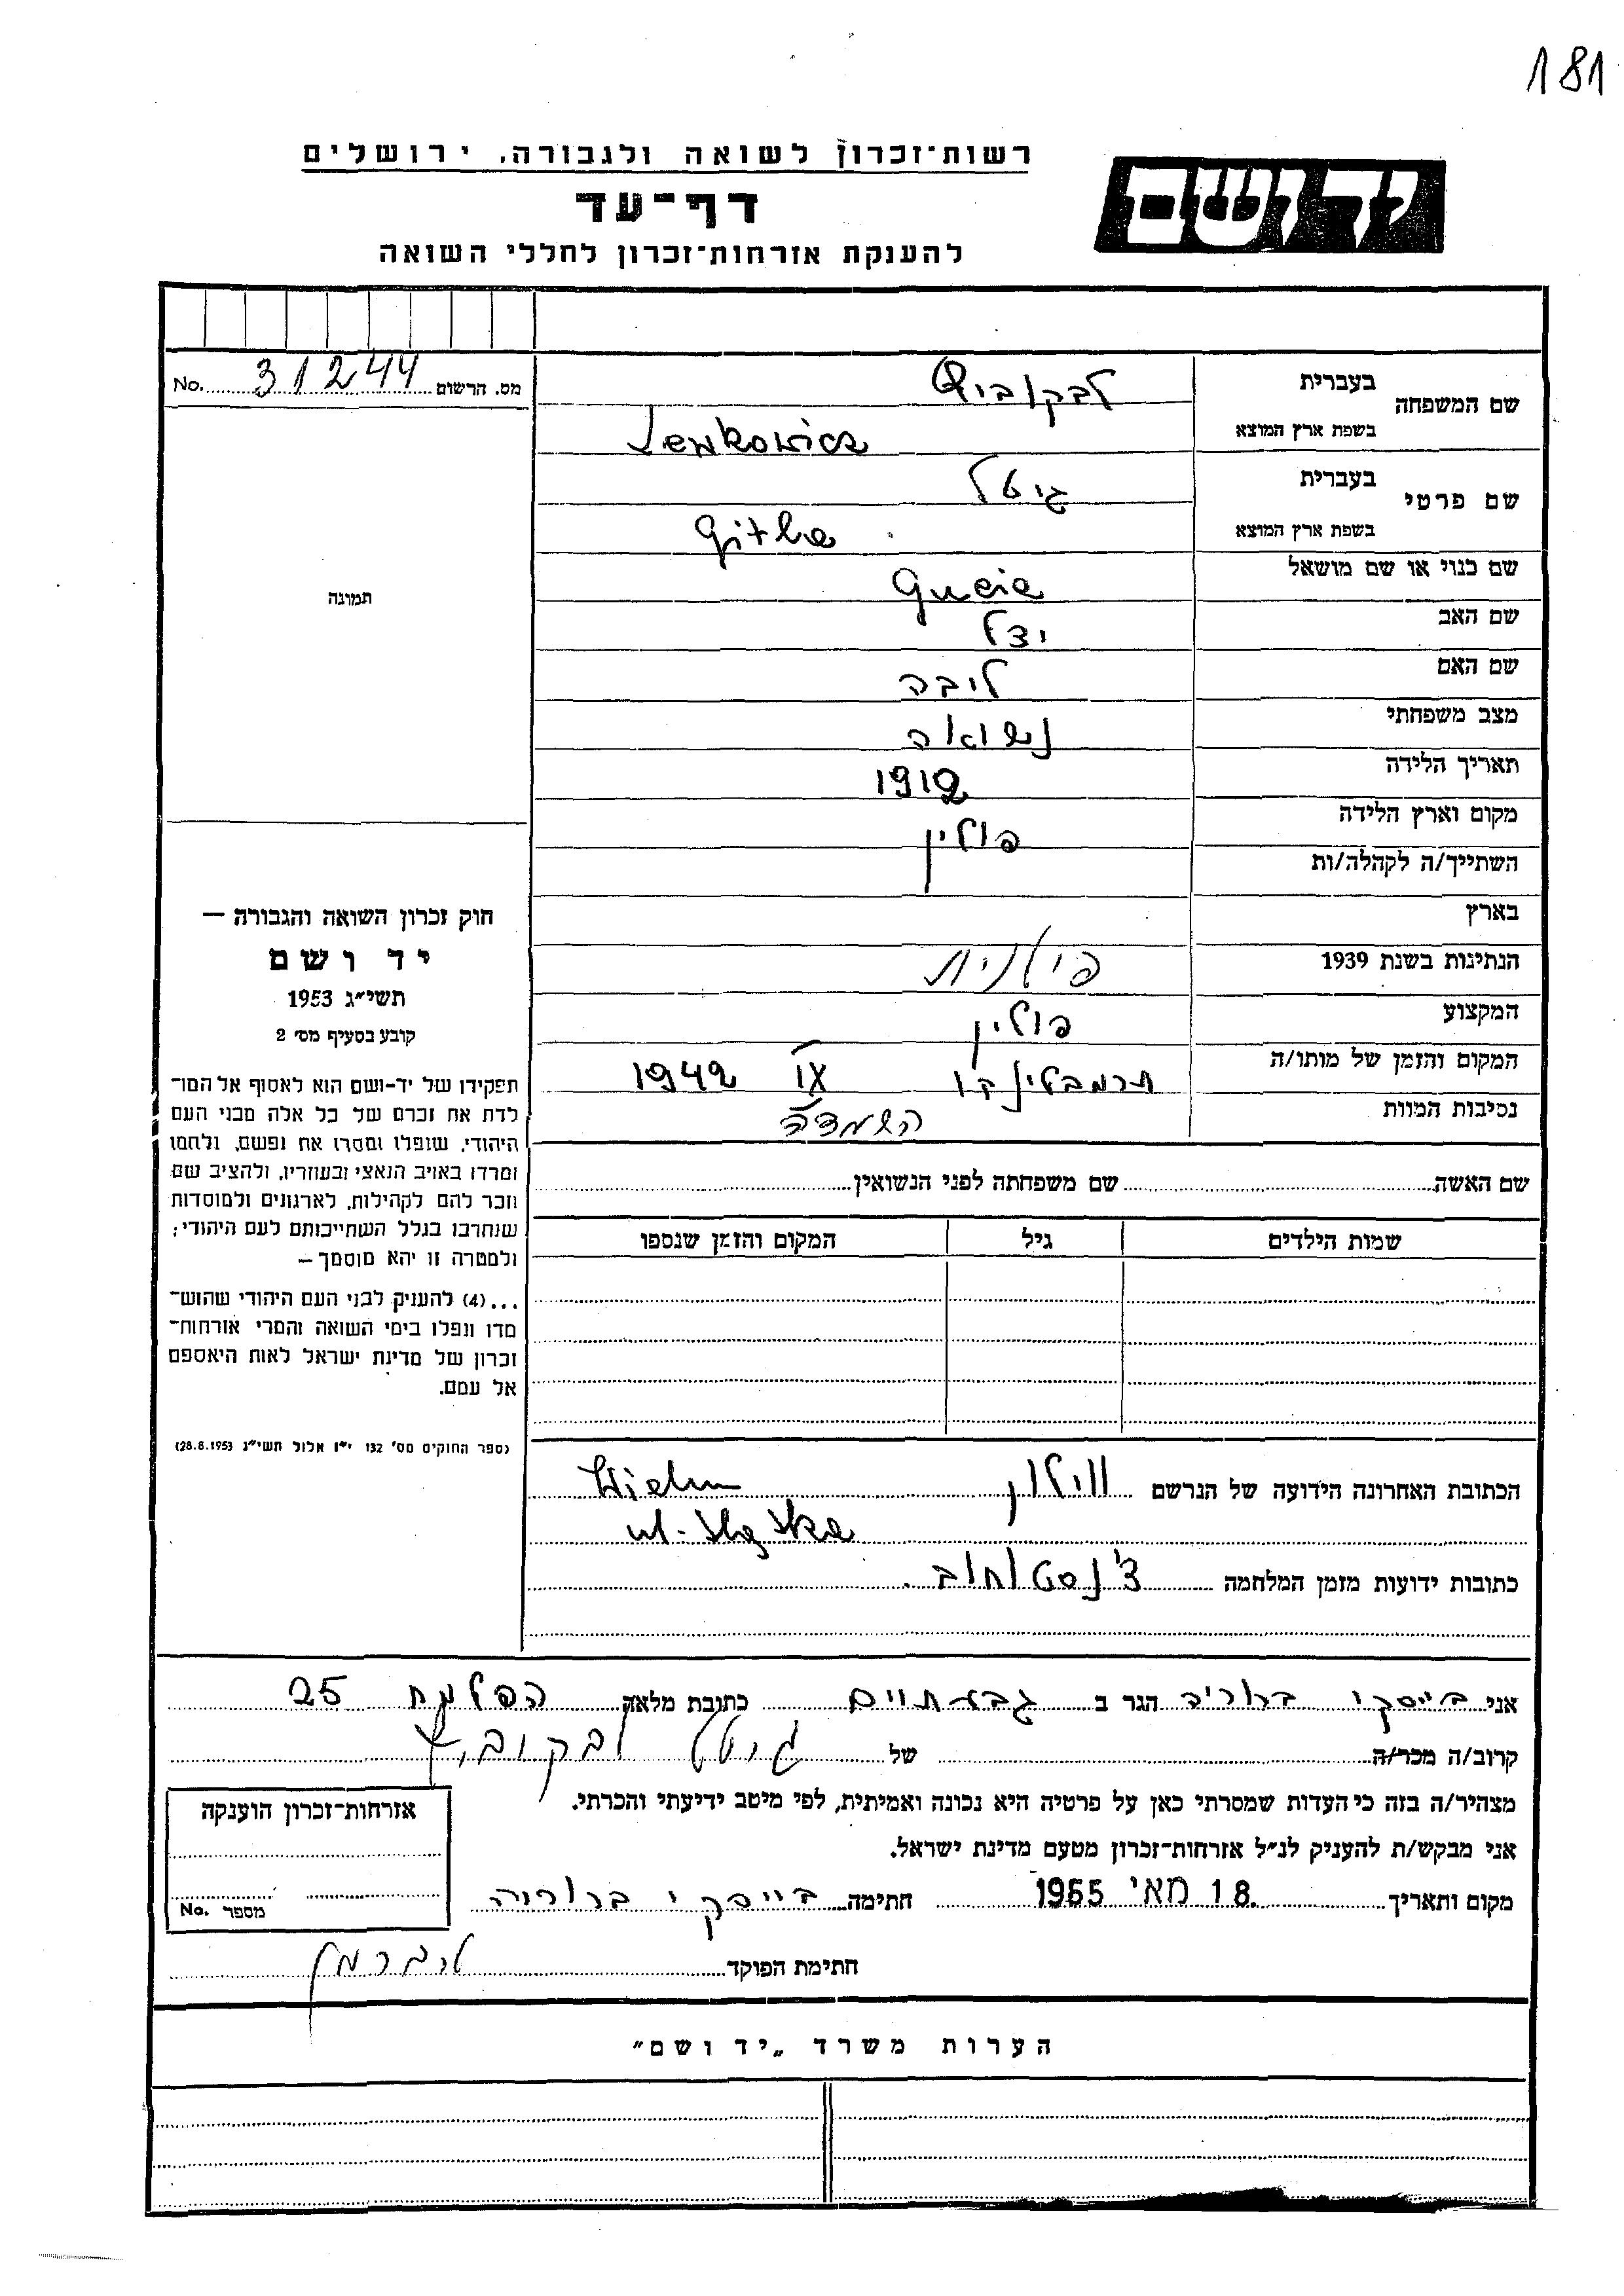 181
רשות־זכרון לשואה ולגבורה, ירושלים
יד ושם
דף־עד
להענקת אזרחות־זכרון לחללי השואה
מס. הרשום 31244 No.
שם המשפחה
בעברית לבקוביץ
בשפת ארץ המוצא Lewkowicz
שם פרטי
בעברית גיטל
בשפת ארץ המוצא Gitla
שם כנוי או שם מושאל Gucia
שם האב יצל
שם האם ליבה
מצב משפחתי נשואה
תאריך הלידה 1912
מקום וארץ הלידה פולין
השתייך/ה לקהלה/ות
בארץ
הנתינות בשנת 1939 פולנית
המקצוע פולין
המקום והזמן של מותו/ה IX 1942
נסיבות המוות השמדה
תמונה
חוק זכרון השואה והגבורה —
יד ושם
תשי״ג 1953
קובע בסעיף מס׳ 2
תפקידו של יד־ושם הוא לאסוף אל המו־
לדת את זכרם של כל אלה מבני העם
היהודי, שנפלו ומסרו את נפשם, נלחמו
ומרדו באויב הנאצי ובעוזריו, ולהציב שם
וזכר להם לקהילות, לארגונים ולמוסדות
שנחרבו בגלל השתייכותם לעם היהודי;
ולמטרה זו יהא מוסמך —
...(4) להעניק לבני העם היהודי שהוש־
מדו ונפלו בימי השואה והמרי אזרחות־
זכרון של מדינת ישראל לאות היאספם
אל עמם.
(ספר החוקים מס׳ 132 י״ז אלול תשי״ג 28.8.1953)
שם האשה שם משפחתה לפני הנשואין
שמות הילדים גיל המקום והזמן שנספו
הכתובת האחרונה הידועה של הנרשם ווילון Wielun
כתובות ידועות מזמן המלחמה צ'נסטוחוב.
אני בייסקי ברוריה הגר ב גבעתיים כתובת מלאה הפלמח 25
קרוב/ה מכר/ה של גיטל לבקוביץ
מצהיר/ה בזה כי העדות שמסרתי כאן על פרטיה היא נכונה ואמיתית, לפי מיטב ידיעתי והכרתי.
אני מבקש/ת להעניק לנ״ל אזרחות־זכרון מטעם מדינת ישראל.
מקום ותאריך 18 מאי 1955 חתימה בייסקי ברוריה
חתימת הפוקד ליברמן
אזרחות־זכרון הוענקה
מספר No.
הערות משרד „יד ושם״